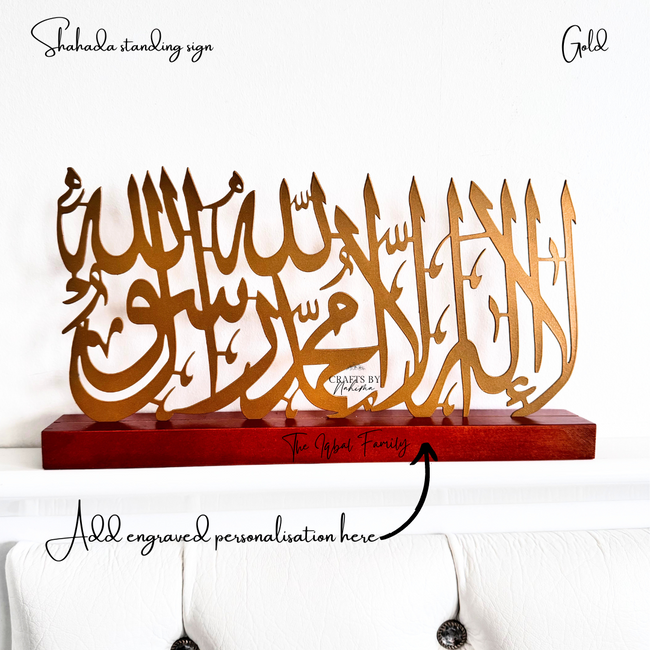 Shahada standing sign
Gold
لا إله إلا الله محمد رسول الله
CRAFTS BY
Nahima
The Iqbal Family
Add engraved personalisation here